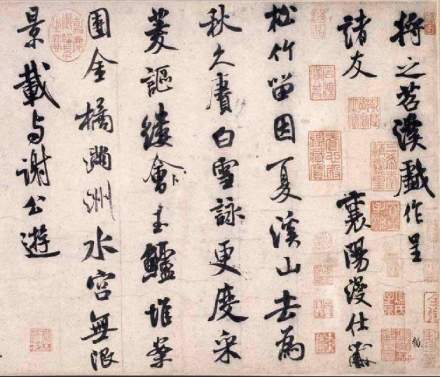 將之苕溪戲作呈
諸友 襄陽漫仕黻
松竹留因夏溪山去為
秋久賡白雪詠更度采
菱謳縷會玉鱸堆案
團金橘滿洲水宮無限
景載與謝公遊